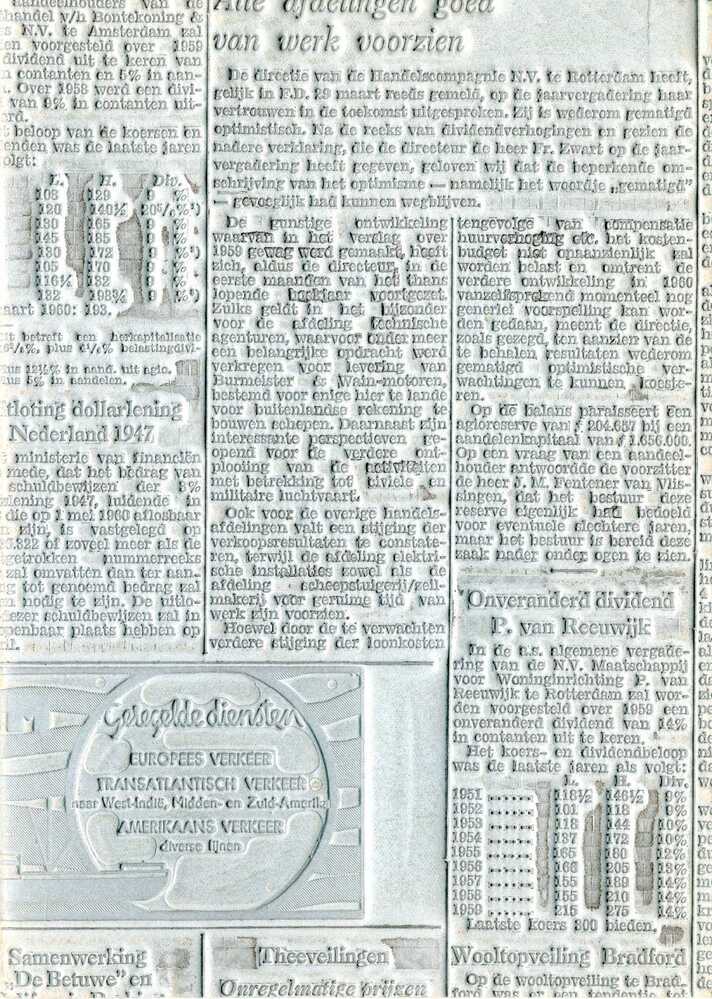 aandeelhouders van de
handel v/h Bontekoning &
s N.V. te Amsterdam zal
en voorgesteld over 1959
dividend uit te keren van
n contanten en 5% in aan-
. Over 1958 werd een divi-
van 9% in contanten uit-
rd.
t beloop van de koersen en
enden was de laatste jaren
olgt:
L. H. Div.
106 129 9 %
120 140½ 20%
130 165 9 %
145 185 9 %
130 172 9 %
105 170 9 %
116½ 132 9 %
132 198¾
aart 1960: 193.
it betreft een herkapitalisatie
plus belastingdivi-
in aand. uit agio.
us 5% in aandelen.
tloting dollarlening
Nederland 1947
ministerie van financiën
mede, dat het bedrag van
schuldbewijzen der 3%
rlening 1947, luidende in
die op 1 mei 1960 aflosbaar
n zijn, is vastgelegd op
.822 of zoveel meer als de
getrokken nummerreeks
zal omvatten dan ter aan-
g tot genoemd bedrag zal
n nodig te zijn. De uitlo-
dezer schuldbewijzen zal in
openbaar plaats hebben op
il.
Alle afdelingen goed
van werk voorzien
De directie van de Handelscompagnie N.V. te Rotterdam heeft,
gelijk in F.D. 29 maart reeds gemeld, op de jaarvergadering haar
vertrouwen in de toekomst uitgesproken. Zij is wederom gematigd
optimistisch. Na de reeks van dividendverhogingen en gezien de
nadere verklaring, die de directeur de heer Fr. Zwart op de jaar-
vergadering heeft gegeven, geloven wij dat de beperkende om-
schrijving van het optimisme — namelijk het woordje „gematigd"
— gevoeglijk had kunnen wegblijven.
De gunstige ontwikkeling
waarvan in het verslag over
1959 gewag werd gemaakt, heeft
zich, aldus de directeur, in de
eerste maanden van het thans
lopende boekjaar voortgezet.
Zulks geldt in het bijzonder
voor de afdeling technische
agenturen, waarvoor onder meer
een belangrijke opdracht werd
verkregen voor levering van
Burmeister & Wain-motoren,
bestemd voor enige hier te lande
voor buitenlandse rekening te
bouwen schepen. Daarnaast zijn
interessante perspectieven ge-
opend voor de verdere ont-
plooiing van de activiteiten
met betrekking tot civiele en
militaire luchtvaart.
Ook voor de overige handels-
afdelingen valt een stijging der
verkoopsresultaten te constate-
ren, terwijl de afdeling elektri-
sche installaties zowel als de
afdeling scheepstuigerij/zeil-
makerij voor geruime tijd van
werk zijn voorzien.
Hoewel door de te verwachten
verdere stijging der loonkosten
tengevolge van compensatie
huurverhoging etc. het kosten-
budget niet onaanzienlijk zal
worden belast en omtrent de
verdere ontwikkeling in 1960
vanzelfsprekend momenteel nog
generlei voorspelling kan wor-
den gedaan, meent de directie,
zoals gezegd, ten aanzien van de
te behalen resultaten wederom
gematigd optimistische ver-
wachtingen te kunnen koeste-
ren.
Op de balans paraisseert een
agioreserve van ƒ 204.657 bij een
aandelenkapitaal van ƒ 1.656.000.
Op een vraag van een aandeel-
houder antwoordde de voorzitter
de heer J. M. Fentener van Vlis-
singen, dat het bestuur deze
reserve eigenlijk had bedoeld
voor eventuele slechtere jaren,
maar het bestuur is bereid deze
zaak nader onder ogen te zien.
Onveranderd dividend
P. van Reeuwijk
In de a.s. algemene vergade-
ring van de N.V. Maatschappij
voor Woninginrichting P. van
Reeuwijk te Rotterdam zal wor-
den voorgesteld over 1959 een
onveranderd dividend van 14%
in contanten uit te keren.
Het koers- en dividendbeloop
was de laatste jaren als volgt:
L. H. Div.
1951 ...... 118½ 146½ 9%
1952 ...... 101 118 9%
1953 ...... 118 144 10%
1954 ...... 137 172 10%
1955 ...... 165 180 12%
1956 ...... 166 205 13%
1957 ...... 155 189 14%
1958 ...... 155 210 14%
1959 ...... 215 275 14%
Laatste koers 300 bieden.
Geregelde diensten
EUROPEES VERKEER
TRANSATLANTISCH VERKEER
naar West-Indië, Midden- en Zuid-Amerika
AMERIKAANS VERKEER
diverse lijnen
Samenwerking
„De Betuwe" en
Theeveilingen
Onregelmatige prijzen
Wooltopveiling Bradford
Op de wooltopveiling te Brad.
ford was er een